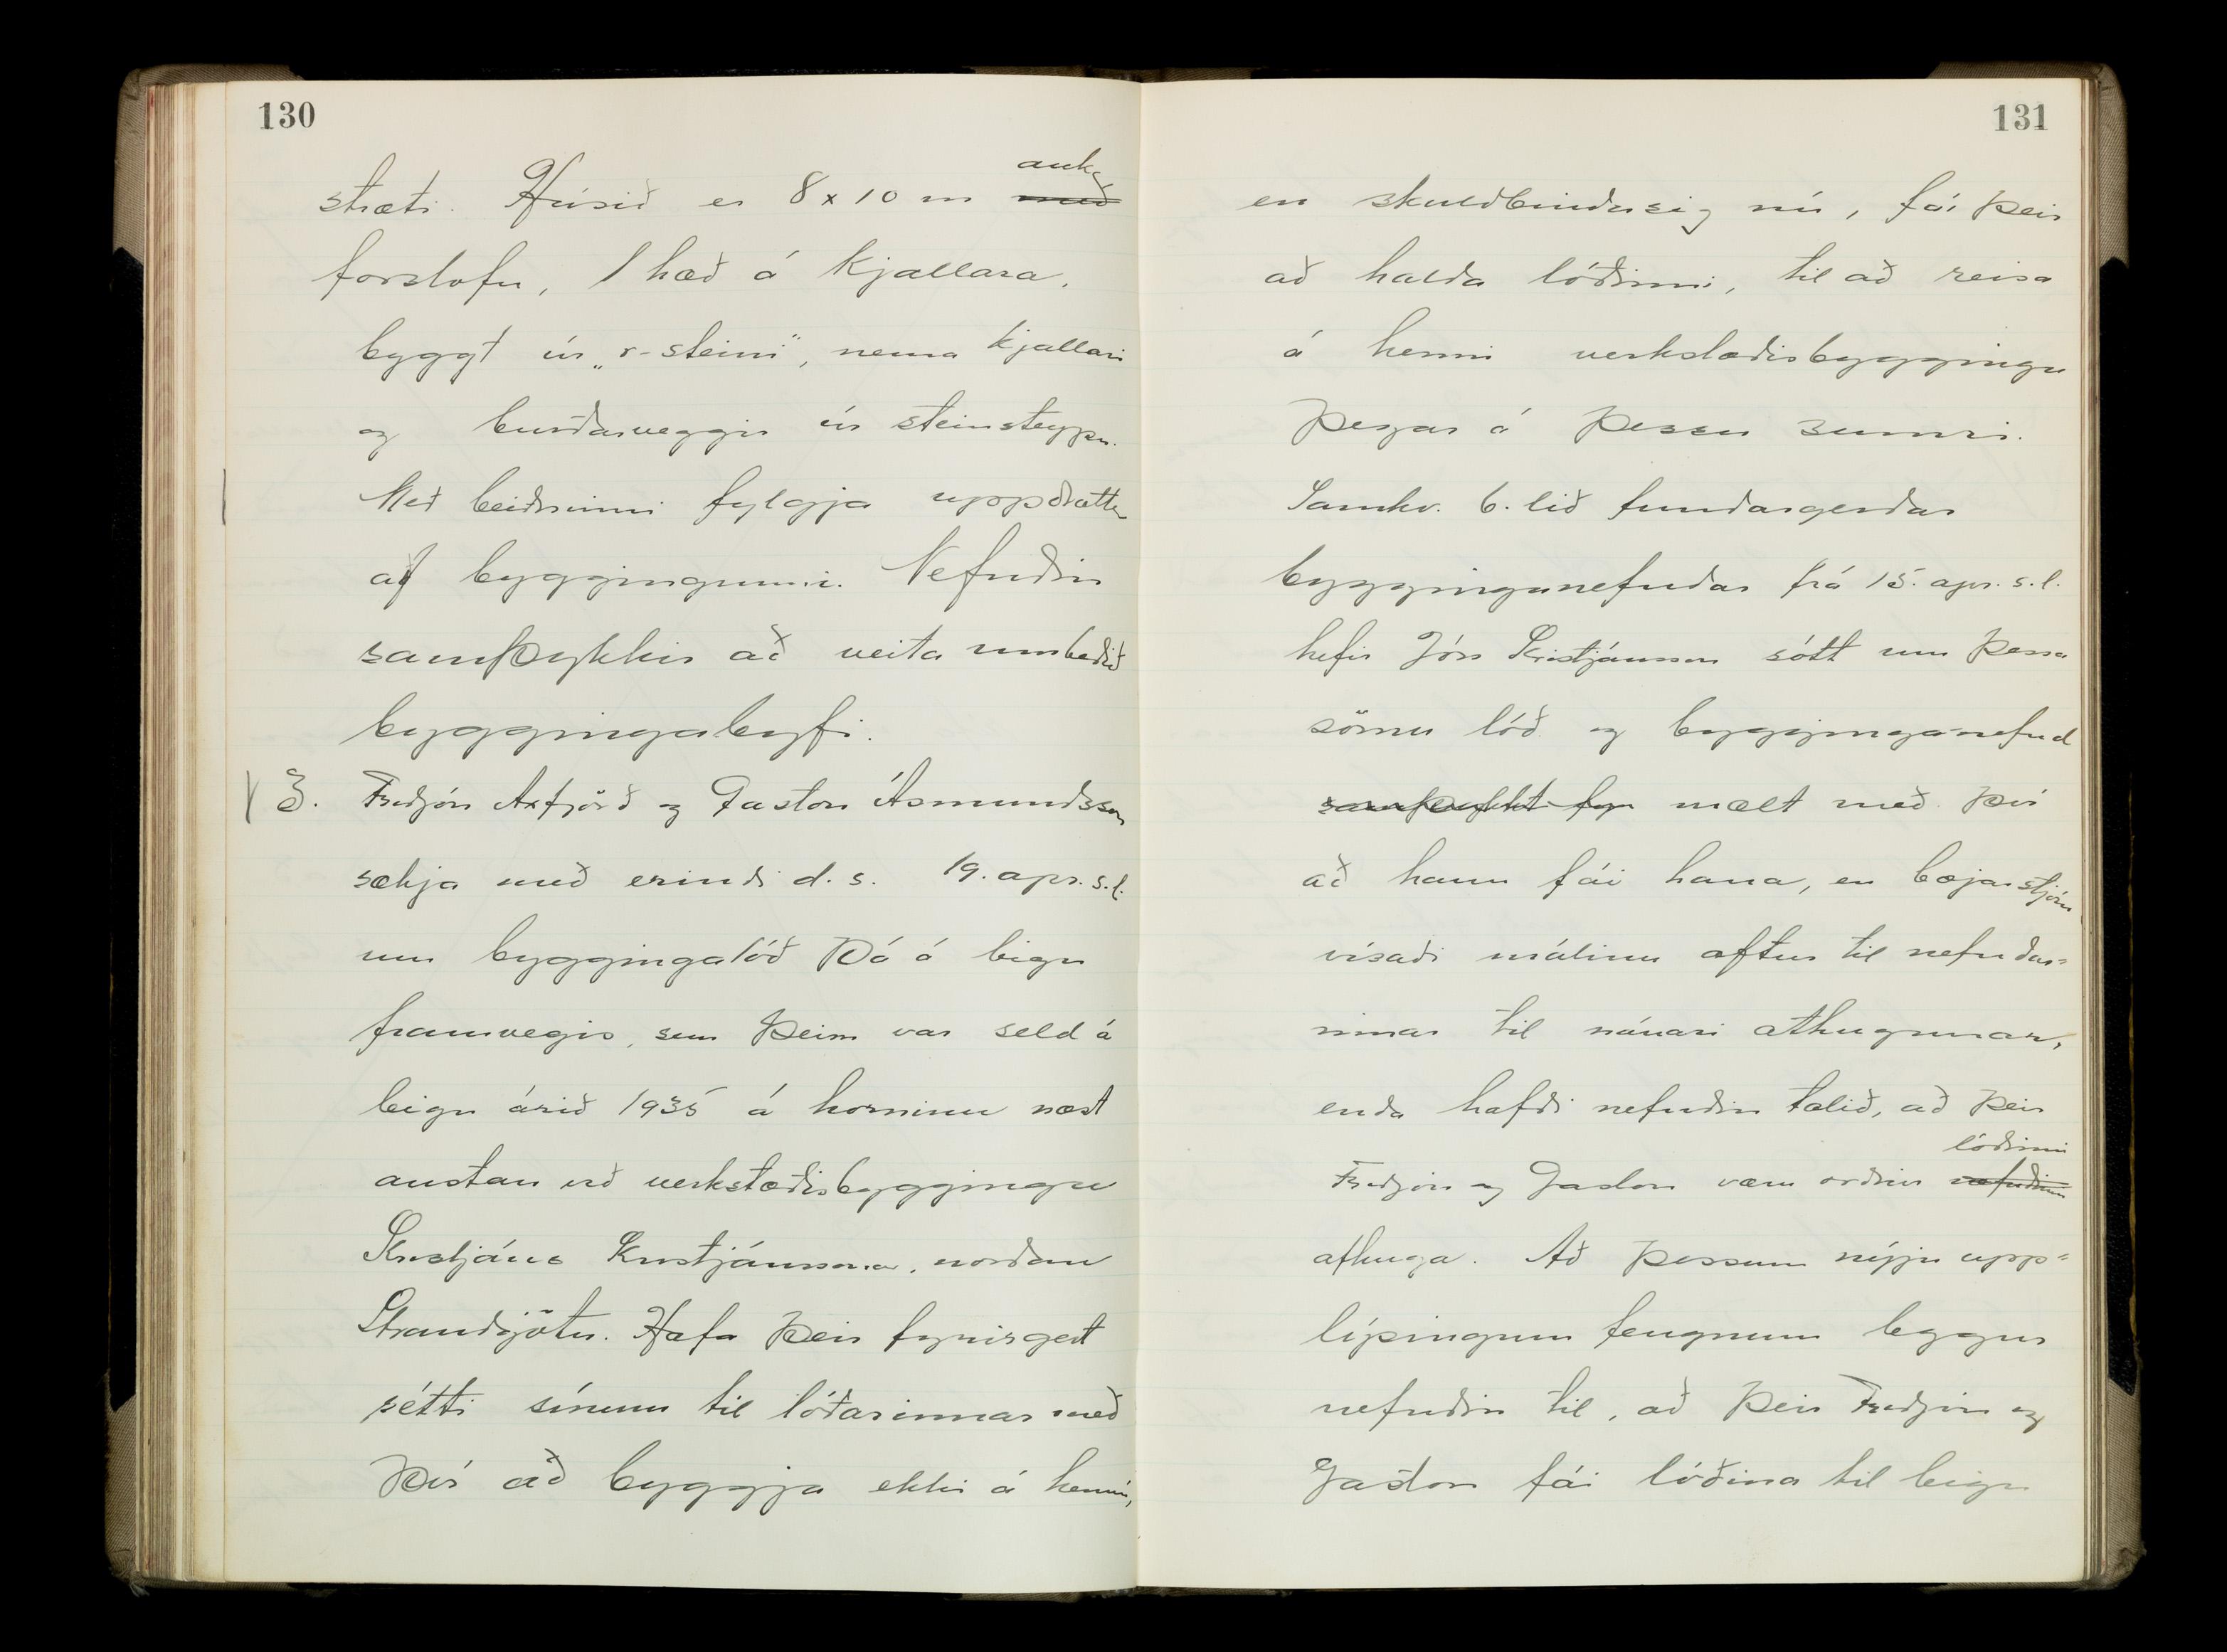 130
stræti. Húsið er 8 x 10 m með auk
forstofu, 1 hæð á kjallara,
byggt úr „r-steini“, nema kjallari
og burðarveggir úr steinsteypu.
Með beiðninni fylgja uppdrættir
af byggingunni. Nefndin
samþykkir að veita umbeðið
byggingaleyfi.
3. Friðjón Axfjörð og Gaston Ásmundsson
sækja með erindi d. s. 19. apr. s.l.
um byggingalóð þá á leigu
framvegis, sem þeim var seld á
leigu árið 1935 á horninu næst
austan við verkstæðisbyggingu
Kristjáns Kristjánssonar, norðan
Strandgötu. Hafa þeir fyrirgert
rétti sínum til lóðarinnar með
því að byggja ekki á henni,
131
en skuldbinda sig nú, fái þeir
að halda lóðinni, til að reisa
á henni verkstæðisbyggingu
þegar á þessu sumri.
Samkv. 6. lið fundargerðar
bygginganefndar frá 15. apr. s.l.
hefir Jón Kristjánsson sótt um þessa
sömu lóð og bygginganefnd
samþykkt fyr mælt með því
að hann fái hana, en bæjarstjórn
vísaði málinu aftur til nefndar=
innar til nánari athugunar,
enda hafði nefndin talið, að þeir
lóðinni
Friðjón og Gaston væru orðnir nefndinni
afhuga. Að þessum nýju upp=
lýsingum fengnum leggur
nefndin til, að þeir Friðjón og
Gaston fái lóðina til leigu